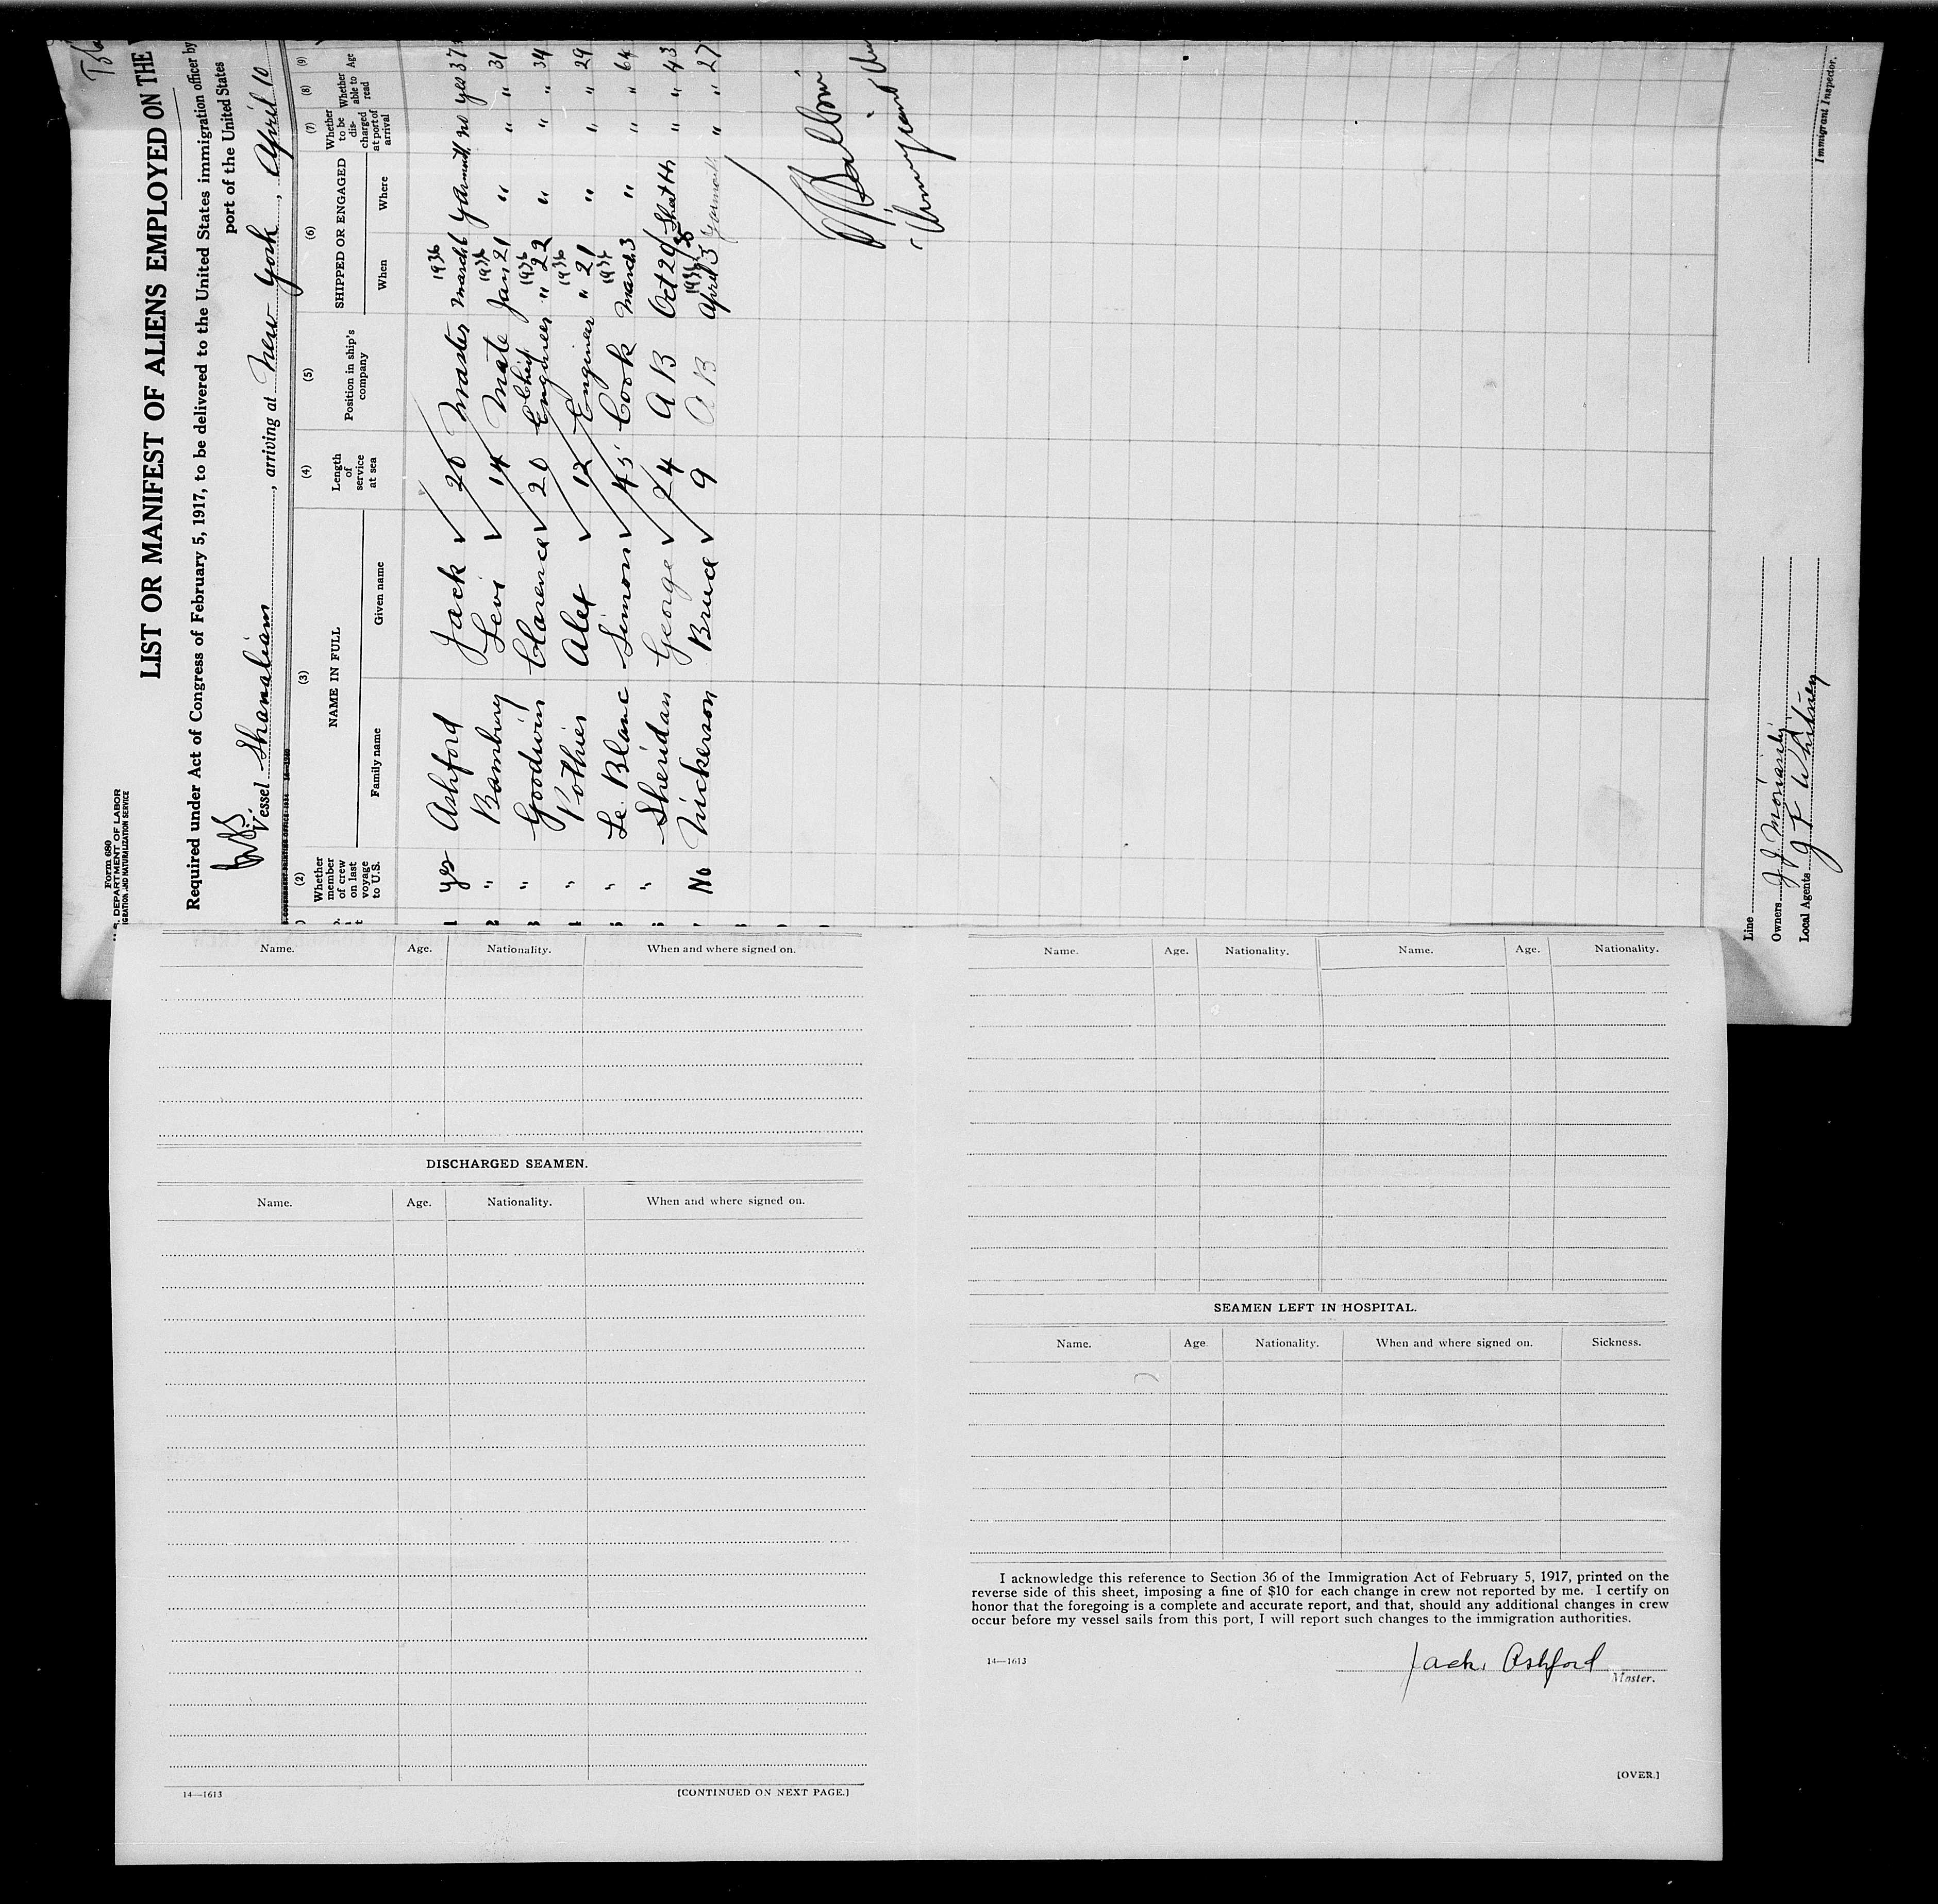 Form 680
U.S. DEPARTMENT OF LABOR
IGRATION AND NATURALIZATION SERVICE
LIST OR MANIFEST OF ALIENS EMPLOYED ON THE
Required under Act of Congress of February 5, 1917, to be delivered to the United States immigration officer by
port of the United States
Vessel Shanalian, arriving at New York, April 10
U.S. GOVERNMENT PRINTING OFFICE: 1934 14—1240
(2) (3) (4) (5) (6) (7) (8) (9)
Whether member of crew on last voyage to U.S. NAME IN FULL Length of service at sea Position in ship's company SHIPPED OR ENGAGED Whether to be discharged at port of arrival Whether able to read Age
Family name Given name When Where
1 yes Ashford Jack 20 Master 1936 March 6 Yarmouth no yes 37
2 " Bambury Levi 14 Mate 1936 Jan 21 " " " 31
3 " Goodwin Clarence 20 Chief Engineer 1936 " 22 " " " 34
4 " Pothier Alex 12 Engineer 1936 " 21 " " " 29
5 " Le Blanc Simon 45 Cook March 3 " " " 64
6 " Sheridan George 24 A B Oct 29/35 " " 43
7 No Nickerson Bruce 9 A B 1936 April 3 Yarmouth " " 27
Line
Owners J J Moriarity
Local Agents G F Whitney
Immigrant Inspector.
Name. Age. Nationality. When and where signed on.
DISCHARGED SEAMEN.
Name. Age. Nationality. When and where signed on.
14—1613 [CONTINUED ON NEXT PAGE.]
Name. Age. Nationality. Name. Age. Nationality.
SEAMEN LEFT IN HOSPITAL.
Name. Age Nationality. When and where signed on. Sickness.
I acknowledge this reference to Section 36 of the Immigration Act of February 5, 1917, printed on the
reverse side of this sheet, imposing a fine of $10 for each change in crew not reported by me. I certify on
honor that the foregoing is a complete and accurate report, and that, should any additional changes in crew
occur before my vessel sails from this port, I will report such changes to the immigration authorities.
14—1613
Jack Ashford
Master.
[OVER.]